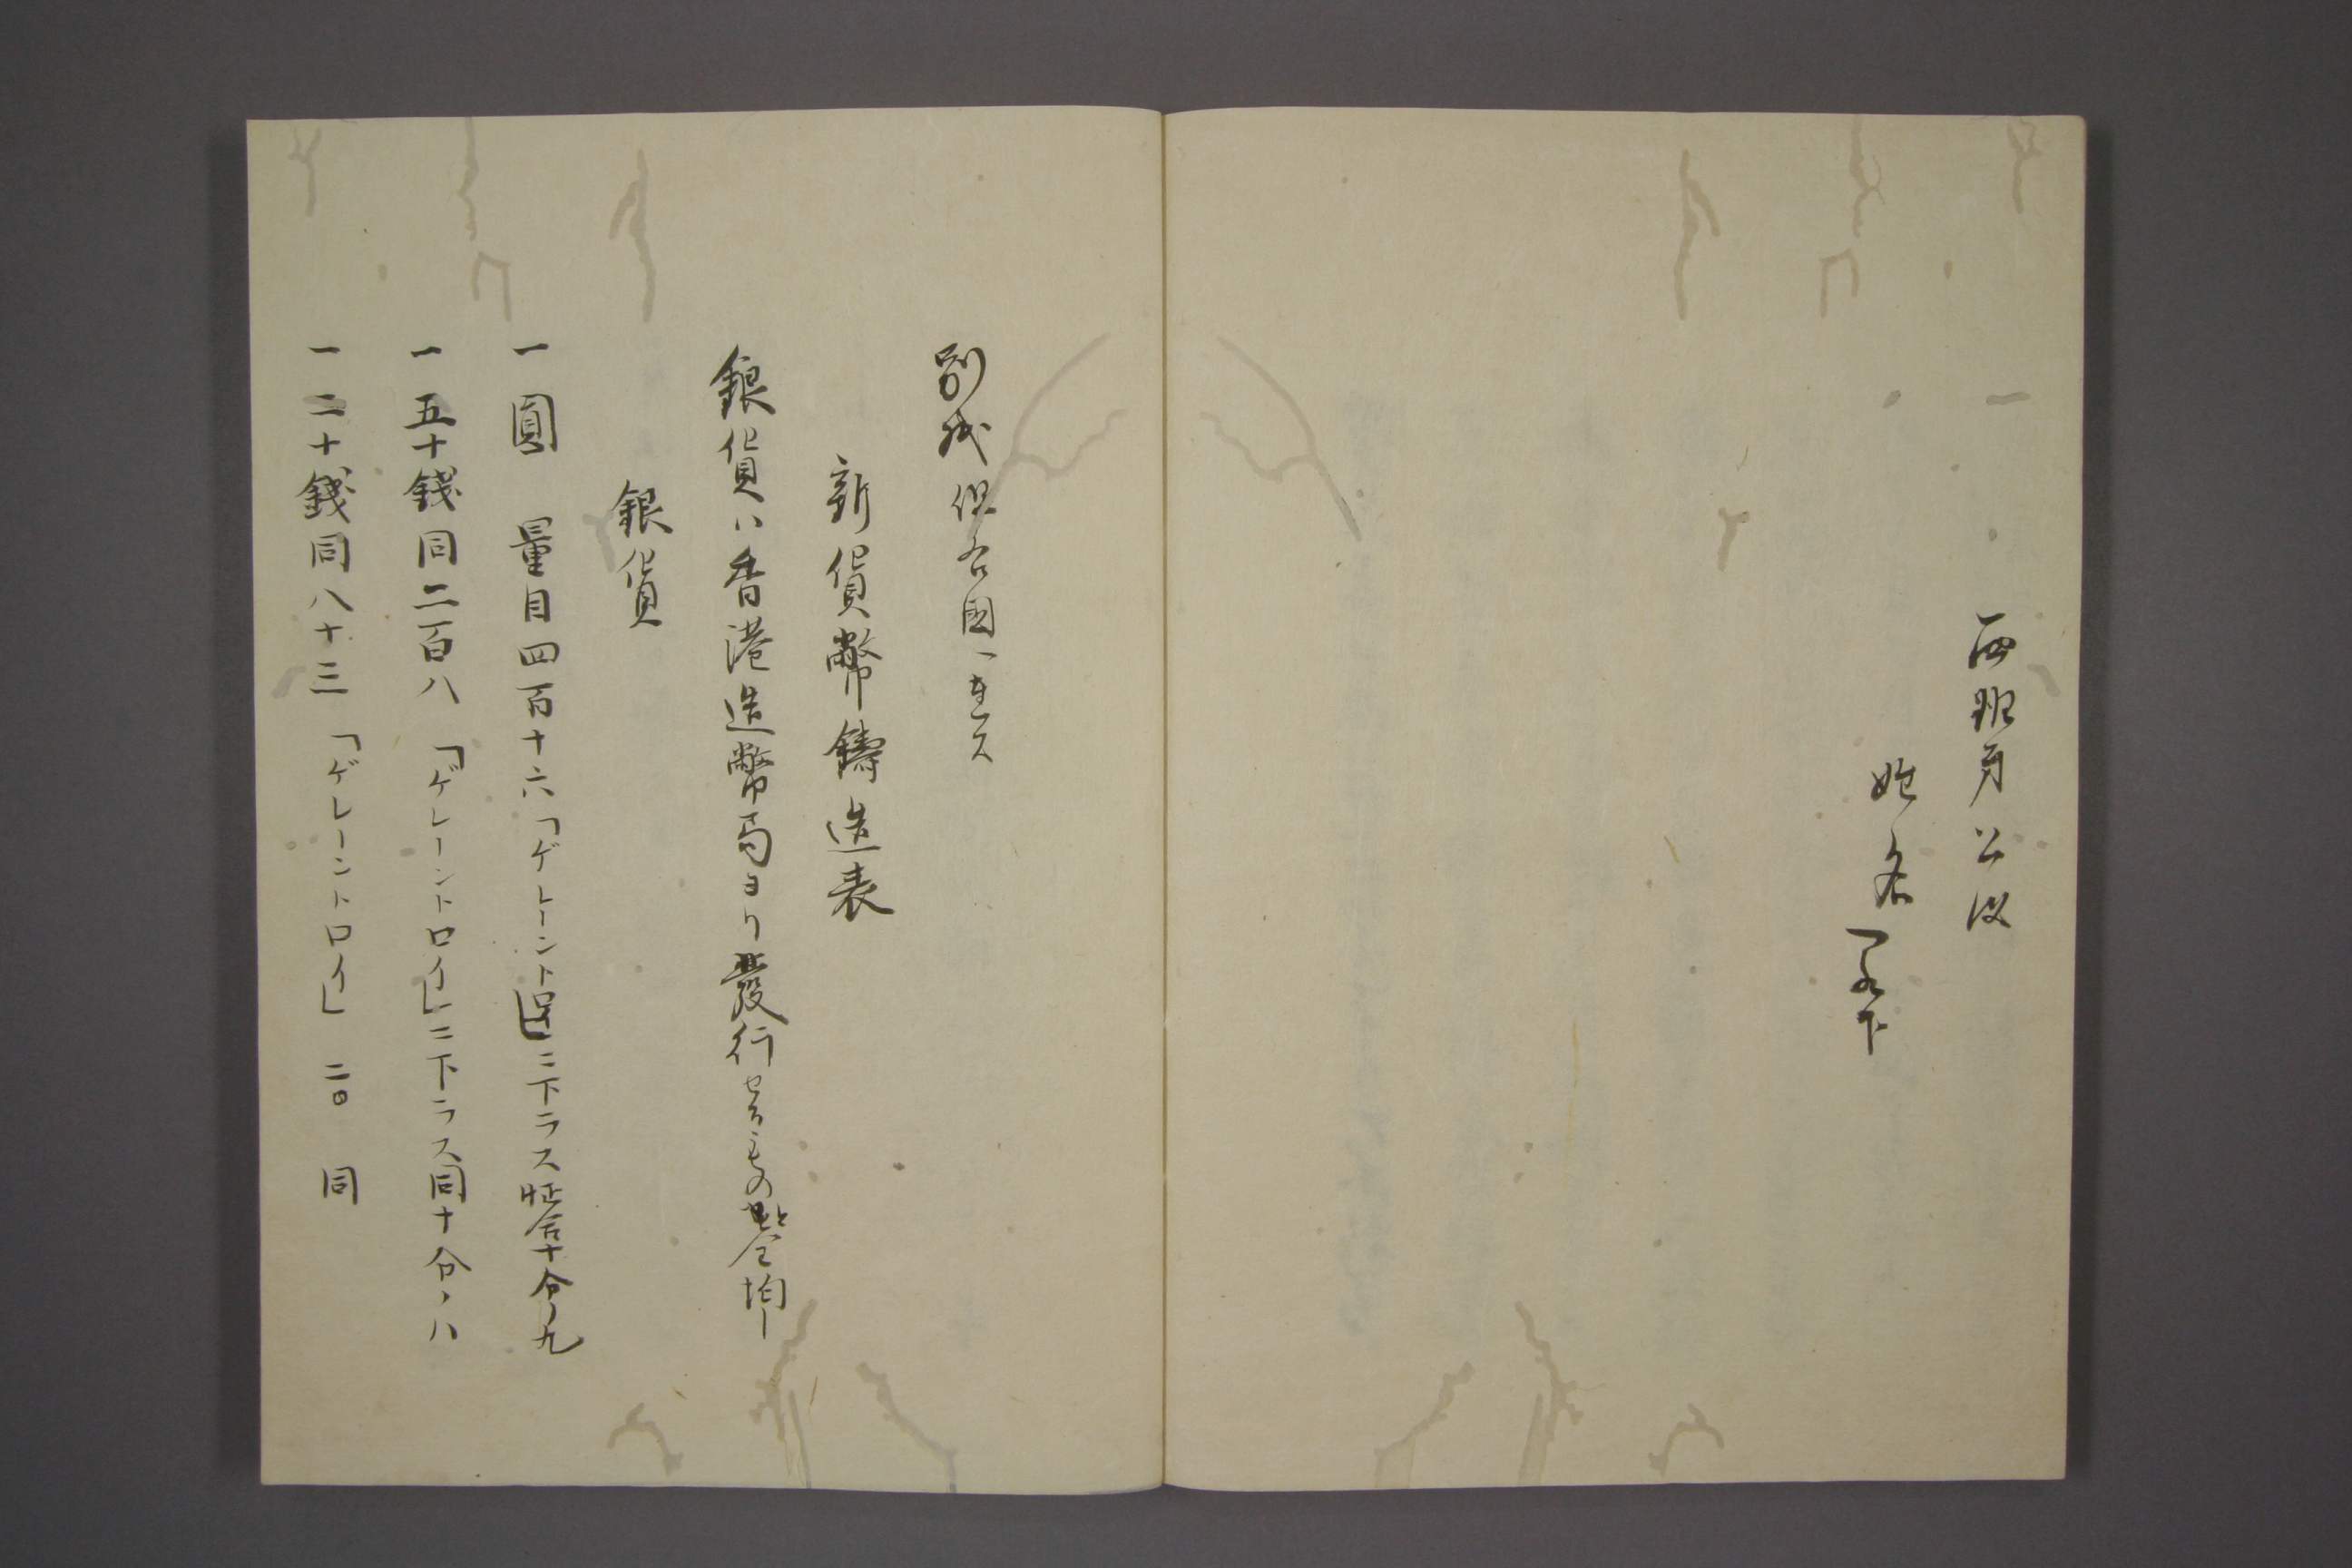 西班牙公使
姓名 閣下
別紙 但各国一連ス
新貨幣鑄造表
銀貨ハ香港造幣局ヨリ發行セるもの皆全均シ
銀貨
一圓 量目四百十六「ゲレーントロイ」ニ下ラス性合十分ノ九
一五十錢同二百八「ゲレーントロイ」ニ下ラス同十分ノ八
一二十錢同八十三「ゲレーントロイ」二〇 同